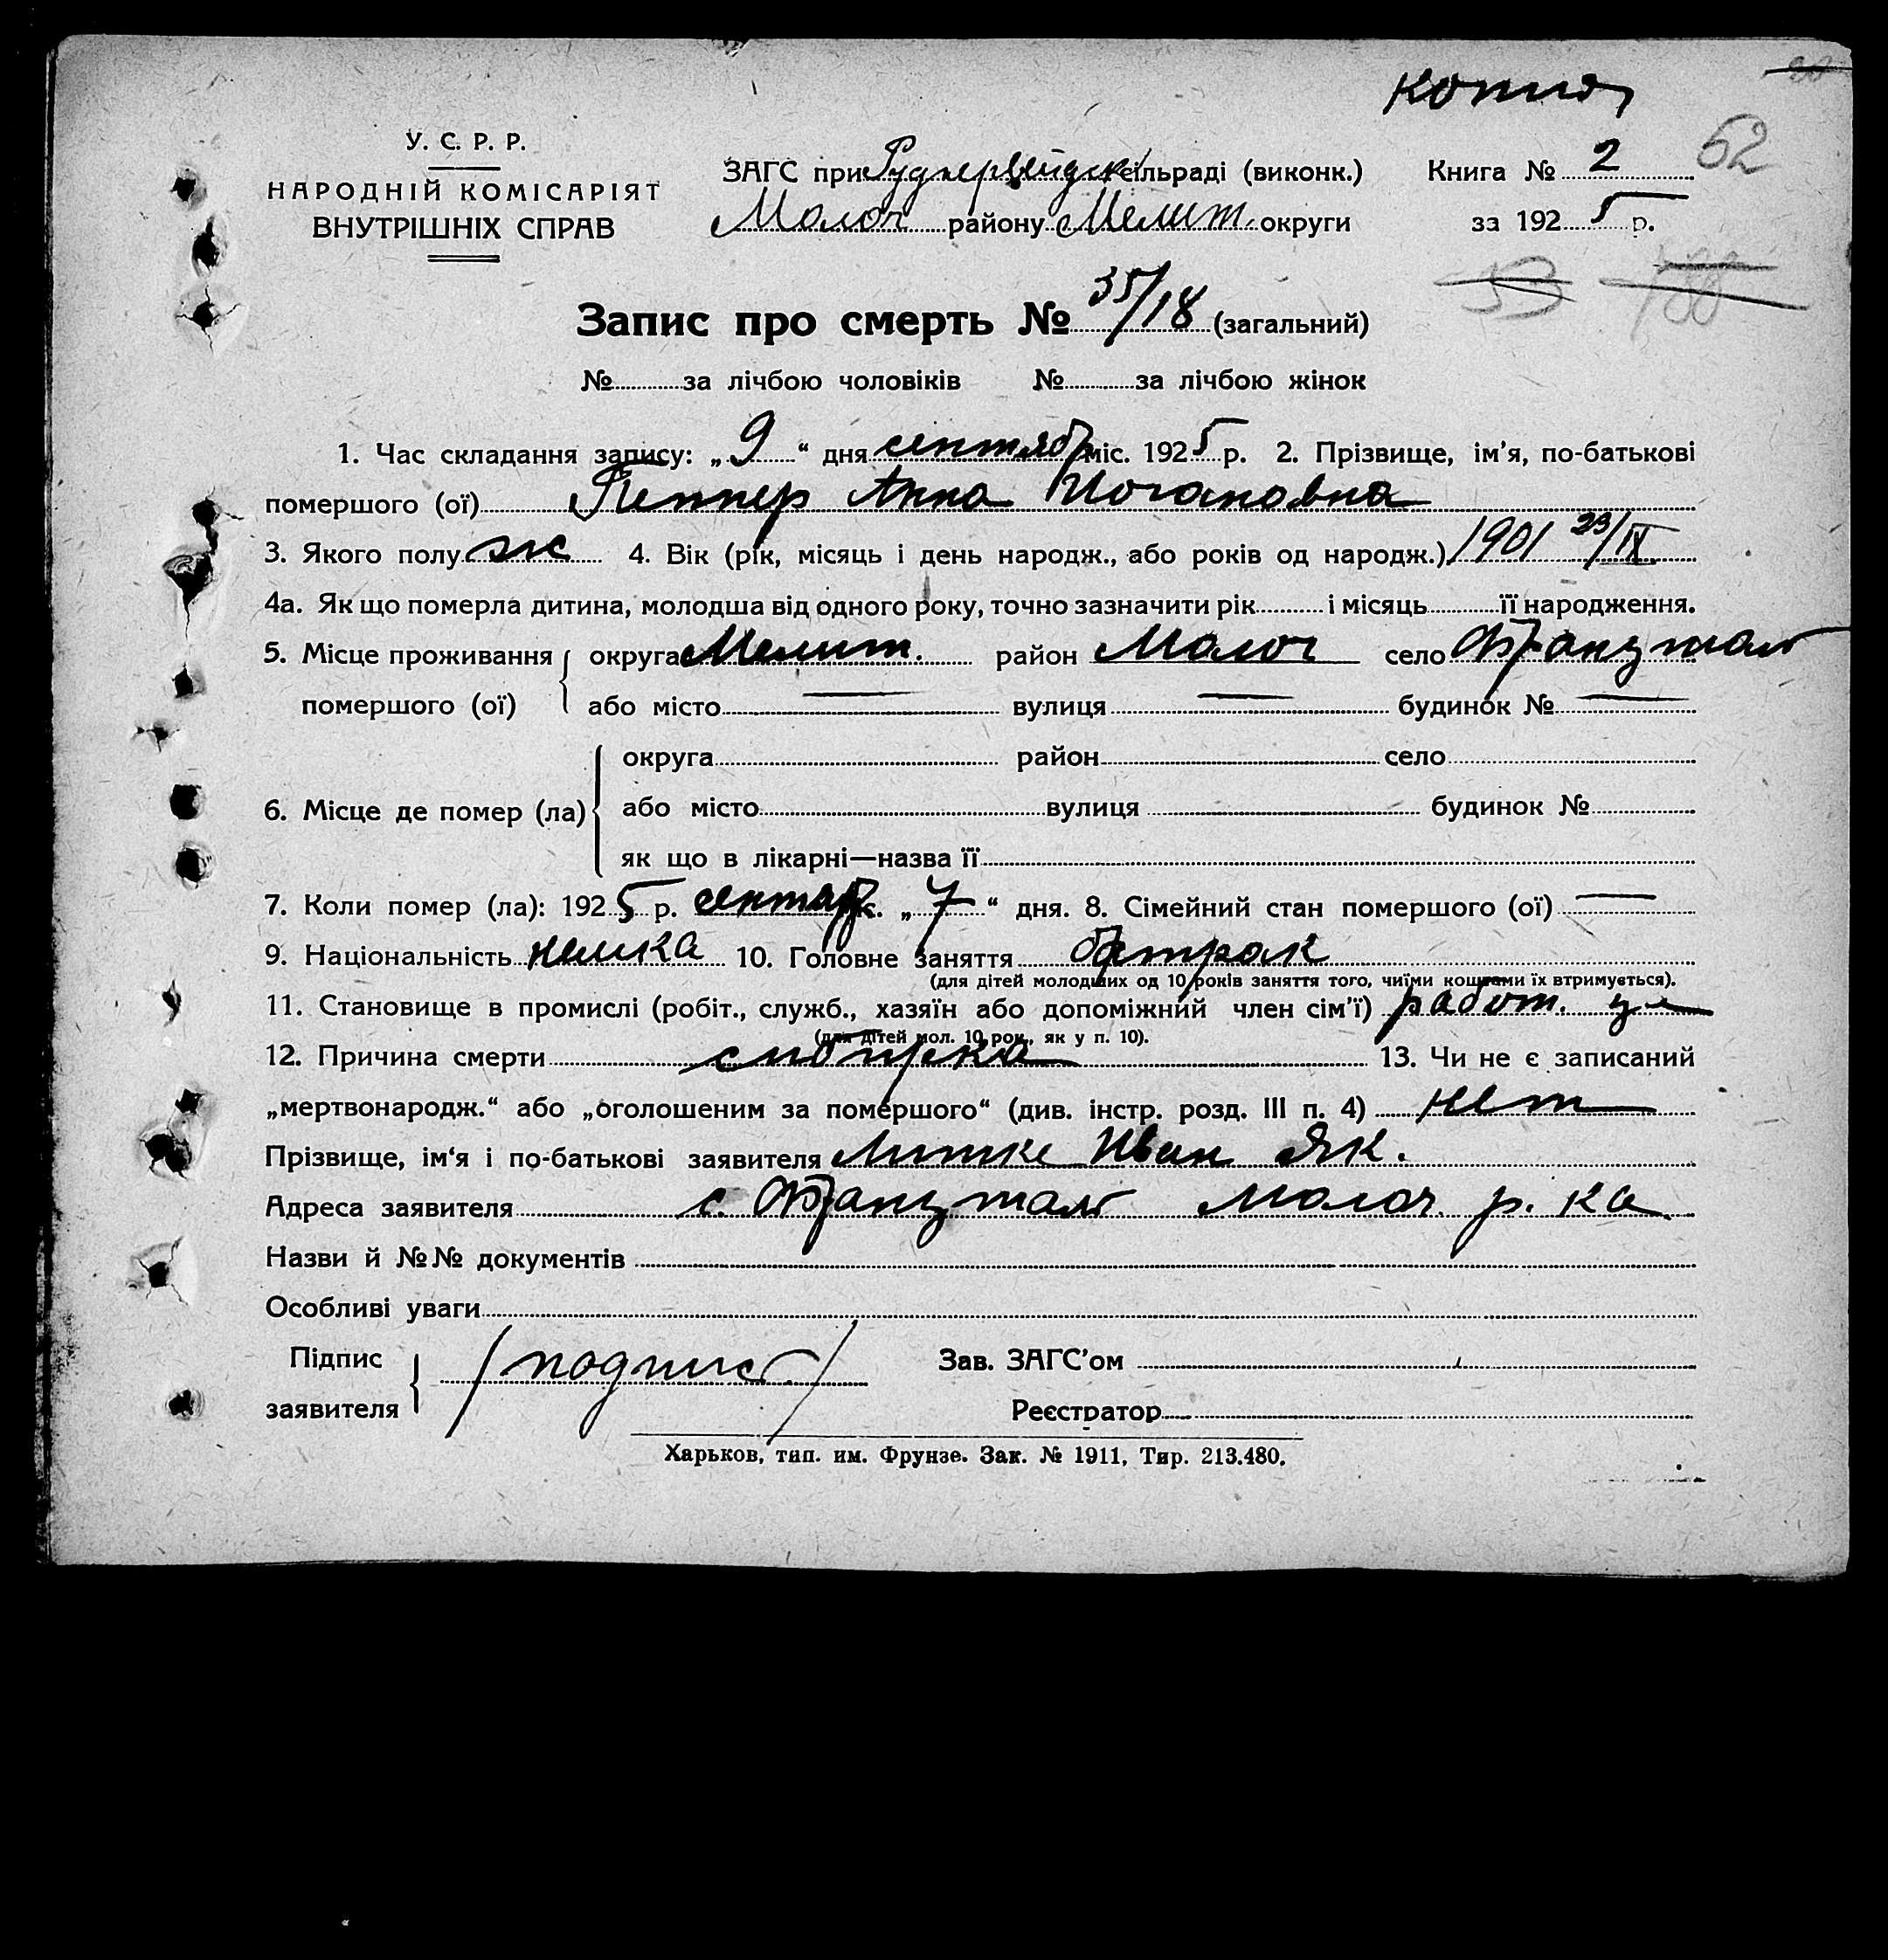 копия
У. С. Р. Р.
НАРОДНІЙ КОМІСАРІЯТ
ВНУТРІШНІХ СПРАВ
ЗАГС при Руднервейдск сільраді (виконк.)
Молоч району Мелит. округи
Книга № 2
62
за 1925 р.
Запис про смерть № 35/18 (загальний)
№ за лічбою чоловіків № за лічбою жінок
1. Час складання запису: „ 9 “ дня сентябр міс. 1925 р. 2. Прізвище, ім'я, по-батькові
помершого (ої) Пеннер Анна Иогановна
3. Якого полу ж 4. Вік (рік, місяць і день народж., або років од народж.) 1901 23/IX
4а. Як що померла дитина, молодша від одного року, точно зазначити рік і місяць її народження.
5. Місце проживання помершого (ої) округа Мелит. район Молоч село Францталь
або місто — вулиця — будинок № —
6. Місце де помер (ла) округа район село
або місто вулиця будинок №
як що в лікарні—назва її
7. Коли помер (ла): 1925 р. сентябр с. „ 7 “ дня. 8. Сімейний стан помершого (ої) —
9. Національність немка 10. Головне заняття батрак
(для дітей молодших од 10 років заняття того, чиїми коштами їх втримується).
11. Становище в промислі (робіт., служб., хазяїн або допоміжний член сім'ї) работ.
(для дітей мол. 10 рок., як у п. 10).
12. Причина смерти 13. Чи не є записаний
„мертвонародж.“ або „оголошеним за помершого“ (див. інстр. розд. III п. 4) нет
Прізвище, ім'я і по-батькові заявителя Литке Иван Як.
Адреса заявителя с. Францталь Молоч. р. ка
Назви й №№ документів
Особливі уваги
Підпис заявителя /подпись/
Зав. ЗАГС'ом
Реєстратор
Харьков, тип. им. Фрунзе. Зак. № 1911, Тир. 213.480.